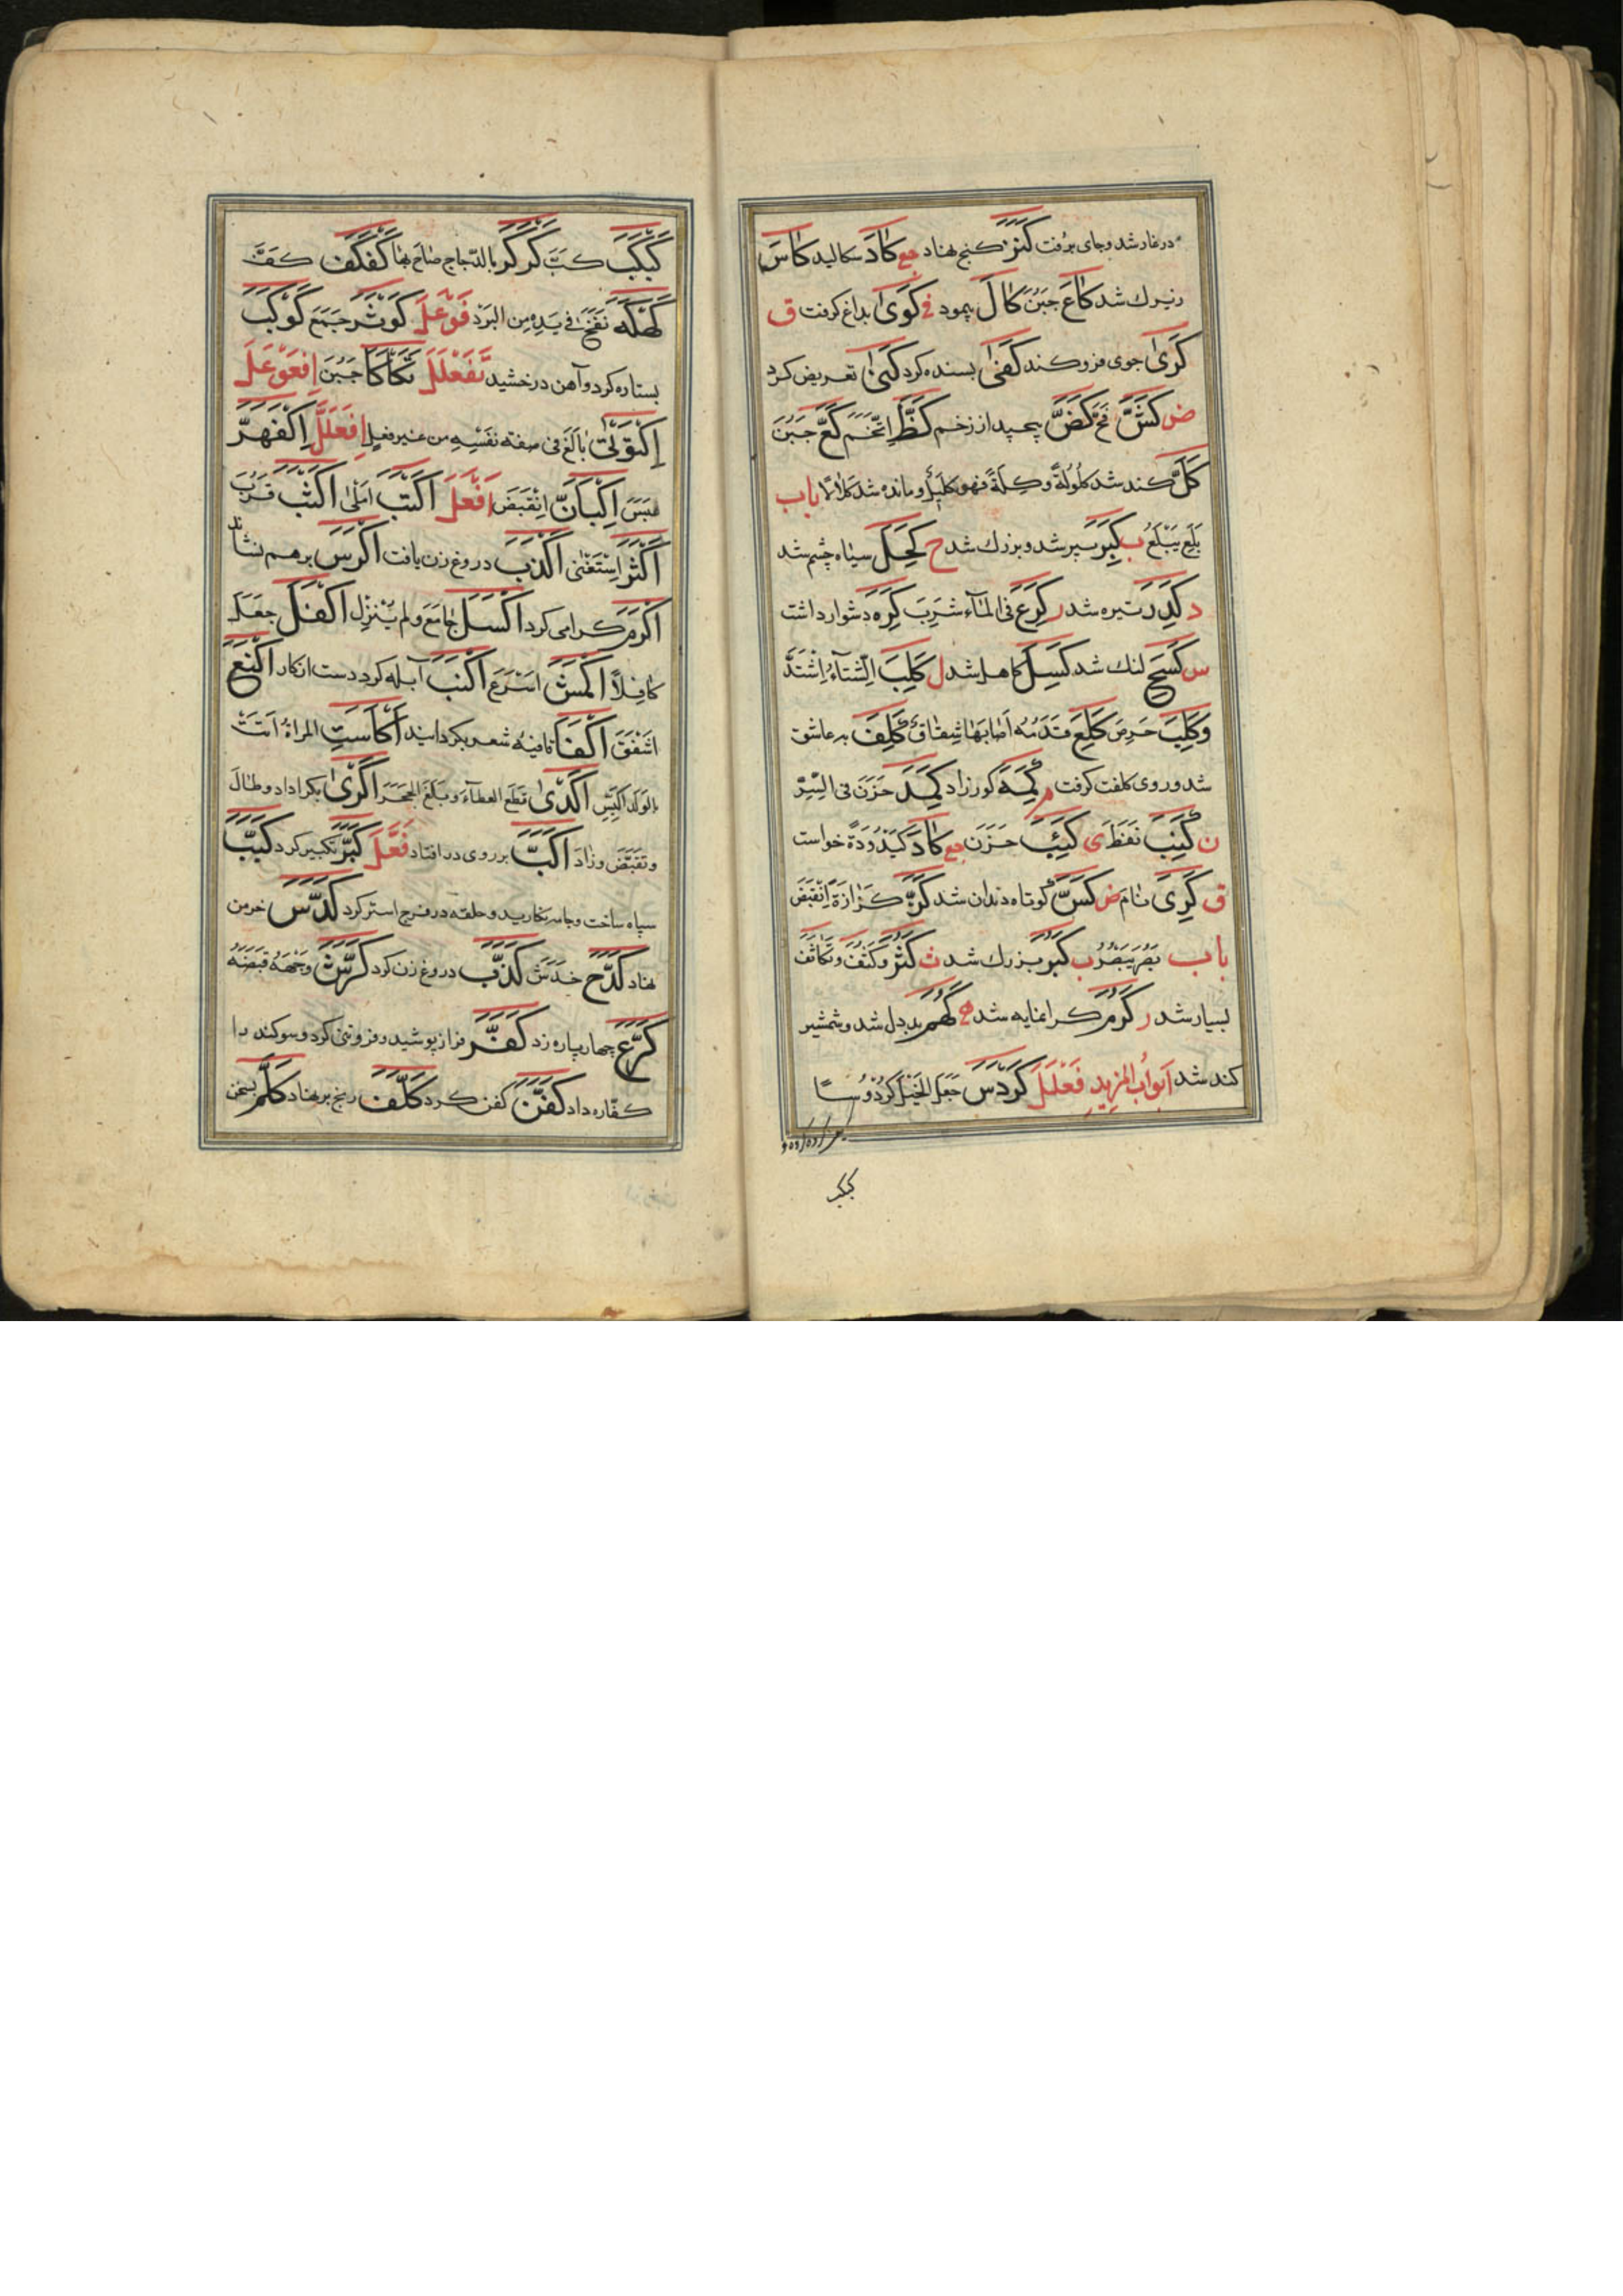 در غار شد و جای برفت کَنَزَ کنج نهاد جع کَادَ سکالید کَاسَ
زیرك شد کَاعَ جَبُنَ کَالَ پیمود فی کَوَیٰ بداغ کرفت ق
کَرَیٰ جوی فرو کند کَفَیٰ بسنده کرد کَنَیٰ تعریض کرد
ض کَشَّ فَحَّ کَضَّ پیچید از زخم کَظَّ اِتَّخَمَ کَعَّ جَبُنَ
کَلَّ کند شد کُلُولَةً وکِلَّةً فهو کَلِیلٌ و مانده شد کَلَالًا باب
بَلِعَ یَبْلَعُ ب کَبِرَ پیر شد و بزرك شد ح کَحِلَ سیاه چشم شد
د کَدِرَ تیره شد ر کَرِعَ فی المَآء شَرِبَ کَرِهَ دشوار داشت
س کَسِحَ لنك شد کَسِلَ کاهل شد ل کَلِبَ الشِّتَآءُ اِشْتَدَّ
وکَلِبَ حَرِصَ کَلِعَ قَدَمُه اَصَابَهَا شِقَاقٌ کَلِفَ به عاشق
شد و روی کلفت کرفت م کَمِهَ کور زاد کَمِدَ حَزِنَ فی السِّرّ
ن کَنِبَ نَفَطَ ی کَئِبَ حَزِنَ جع کَادَ کَیْدُودَةً خواست
ق کَرِیَ نَامَ ض کَسَّ کوتاه دندان شد کَزَّ کَزَازَةً اِنْقَبَضَ
باب بَصُرَ یَبْصُرُ ب کَبُرَ بزرك شد ث کَثُرَ وکَثُفَ وتَکَاثَفَ
بسیار شد ر کَرُمَ کرانمایه شد ه کَهُمَ بددل شد و شمشیر
کند شد اَبوابُ المَزِیدِ فَعْلَلَ کَرْدَسَ جَعَلَ الخَیْلَ کُرْدُوسًا
کبکب
کَبْکَبَ کَبَّ کَرْکَرَ بالدّجاج صَاحَ بِهَا کَفْکَفَ کَفَّ
کَهْکَهَ نَفَخَ فی یَدِهِ مِن البَرْدِ فَوْعَلَ کَوْثَرَ جَمَعَ کَوْکَبَ
بستاره کرد و آهن درخشید تَفَعْلَلَ تَکَأْکَأَ جَبُنَ اِفْعَوْعَلَ
اِکْتَوْتَیٰ بَالَغَ فی صفة نَفْسِهِ من غیر فعل اِفْعَلَلَّ اِکْفَهَرَّ
عَبَسَ اِکْبَأَنَّ انْقَبَضَ اَفْعَلَ اَکْتَبَ اَمْلَیٰ اَکْثَبَ قَرُبَ
اَکْثَرَ اِسْتَغْنَیٰ اَکْذَبَ دروغ زن یافت اَکْرَسَ برهم نشاند
اَکْرَمَ کرامی کرد اَکْسَلَ جَامَعَ ولم یُنْزِل اَکْفَلَ جَعَلَ
کَافِلًا اَکْمَشَ اَسْرَعَ اَکْنَبَ آبله کرد دست از کار اَکْنَعَ
اَشْفَقَ اَکْفَأَ قافیهٔ شعر بکردانید اَکَاسَتِ المراةُ اَتَتْ
بالوَلَد الکَیِّسِ اَکْدَیٰ قَطَعَ العَطَآءَ وبَلَغَ الحَجَرَ اَکْرَیٰ بکرا داد و طَالَ
وتَقَبَّضَ وزَادَ اَکَبَّ بر روی در افتاد فَعَّلَ کَبَّرَ تکبیر کرد کَتَّبَ
سپاه ساخت و جامه نکارید و حلقه در فرج استر کرد کَدَّسَ خرمن
نهاد کَدَّحَ خَدَشَ کَذَّبَ دروغ زن کرد کَرَّشَ وَجْهَهُ قَبَضَهُ
کَرَّعَ چهار پاره زد کَفَّرَ فراز پوشید و فروتنی کرد و سوکند را
کفّاره داد کَفَّنَ کفن کرد کَلَّفَ رنج بر نهاد کَلَّمَ سخن